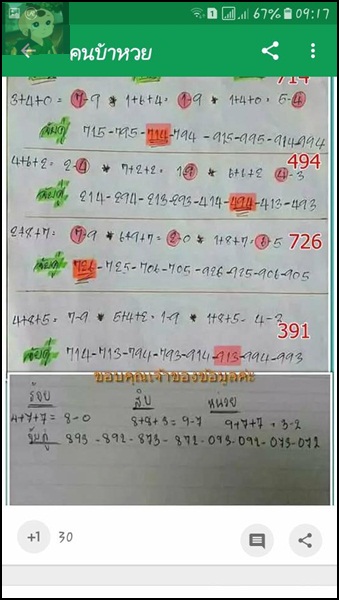 67% 09:17
คนบ้าหวย
714
3+4+0 = 7-9 * 1+6+4= 1-9 * 1+4+0= 5-4
จับคู่ 715-795-714-794-915-995-914-994
494
4+6+2= 2-4 * 7+2+2= 1-9 * 6+6+2 4-3
จับคู่ 214-294-213-293-414-494-413-493
726
2+8+7= 7-9 * 6+9+7= 2-0 * 1+8+7= 6-5
จับคู่ 726-725-706-705-926-925-906-905
391
4+8+5= 7-9 * 5+4+2= 1-9 * 1+8+5- 4-3
จับคู่ 714-713-794-793-914-913-994-993
ขอบคุณเจ้าของข้อมูลค่ะ
ร้อย สิบ หน่วย
4+7+7= 8-0 8+8+3= 9-7 9+7+7= 3-2
จับคู่ 893-892-873-872-093-092-073-072
+1 30